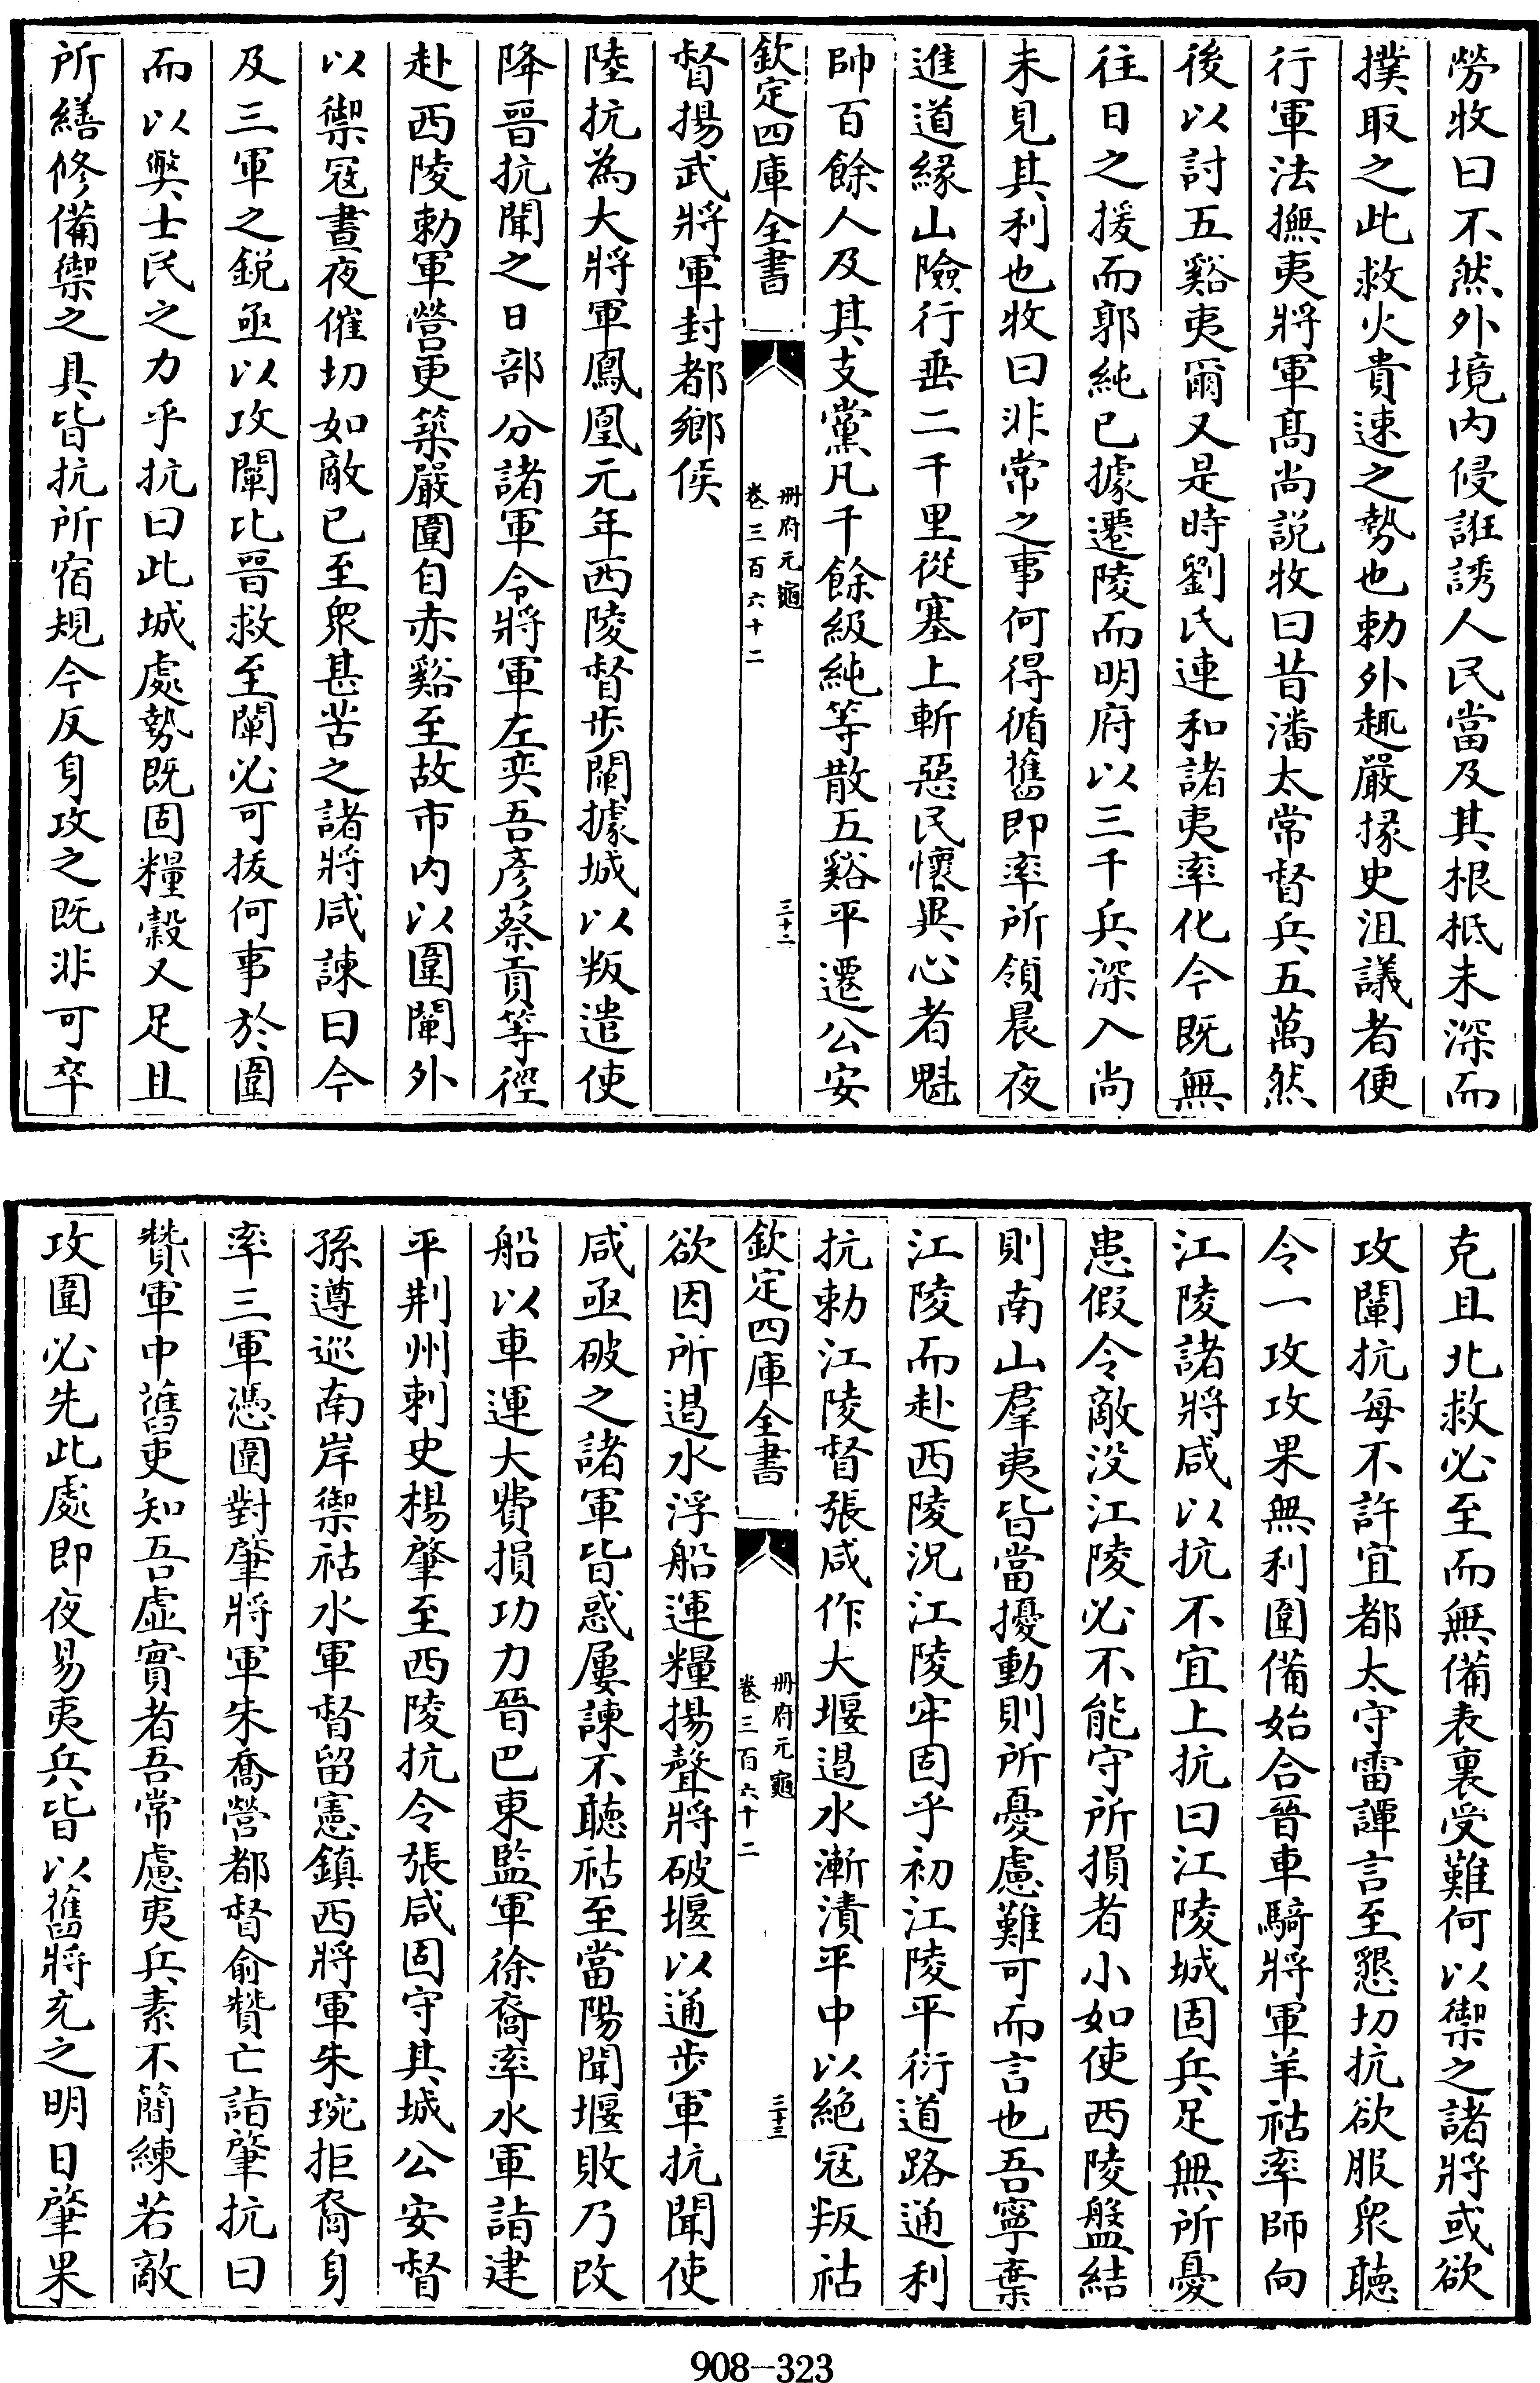 勞牧曰不然外境内侵誑誘人民當及其根柢未深而
撲取之此救火貴速之勢也勅外趣嚴掾史沮議者便
行軍法撫夷將軍髙尚説牧曰昔潘太常督兵五萬然
後以討五谿夷爾又是時劉氏連和諸夷率化今既無
往日之援而郭純已據遷陵而明府以三千兵深入尚
未見其利也牧曰非常之事何得循舊即率所領晨夜
進道緣山險行垂二千里從塞上斬惡民懷異心者魁
帥百餘人及其支黨凡千餘級純等散五谿平遷公安
欽定四庫全書
册府元龜
卷三百六十二
三十二
督揚武將軍封都鄉侯
陸抗為大將軍鳳凰元年西陵督步闡據城以叛遣使
降晉抗聞之日部分諸軍令將軍左奕吾彦蔡貢等徑
赴西陵勅軍營更築嚴圍自赤谿至故市内以圍闡外
以禦冦晝夜催切如敵已至衆甚苦之諸將咸諫曰今
及三軍之鋭亟以攻闡比晉救至闡必可拔何事於圍
而以獘士民之力乎抗曰此城處勢既固糧穀又足且
所繕修備禦之具皆抗所宿規今反身攻之既非可卒
克且北救必至而無備表裏受難何以禦之諸將或欲
攻闡抗每不許宜都太守雷譚言至懇切抗欲服衆聽
令一攻攻果無利圍備始合晉車騎將軍羊祜率師向
江陵諸將咸以抗不宜上抗曰江陵城固兵足無所憂
患假令敵没江陵必不能守所損者小如使西陵盤結
則南山羣夷皆當擾動則所憂慮難可而言也吾寧棄
江陵而赴西陵況江陵牢固乎初江陵平衍道路通利
抗勅江陵督張咸作大堰遏水漸漬平中以絶冦叛祜
欽定四庫全書
册府元龜
卷三百六十二
三十三
欲因所遏水浮船運糧揚聲將破堰以通步軍抗聞使
咸亟破之諸軍皆惑屢諫不聽祜至當陽聞堰敗乃改
船以車運大費損功力晉巴東監軍徐裔率水軍詣建
平荆州刺史楊肇至西陵抗令張咸固守其城公安督
孫遵巡南岸禦祜水軍督留憲鎮西將軍朱琬拒裔身
率三軍憑圍對肇將軍朱喬營都督俞贊亡詣肇抗曰
贊軍中舊吏知吾虚實者吾常慮夷兵素不簡練若敵
攻圍必先此處即夜易夷兵皆以舊將充之明日肇果
908-323